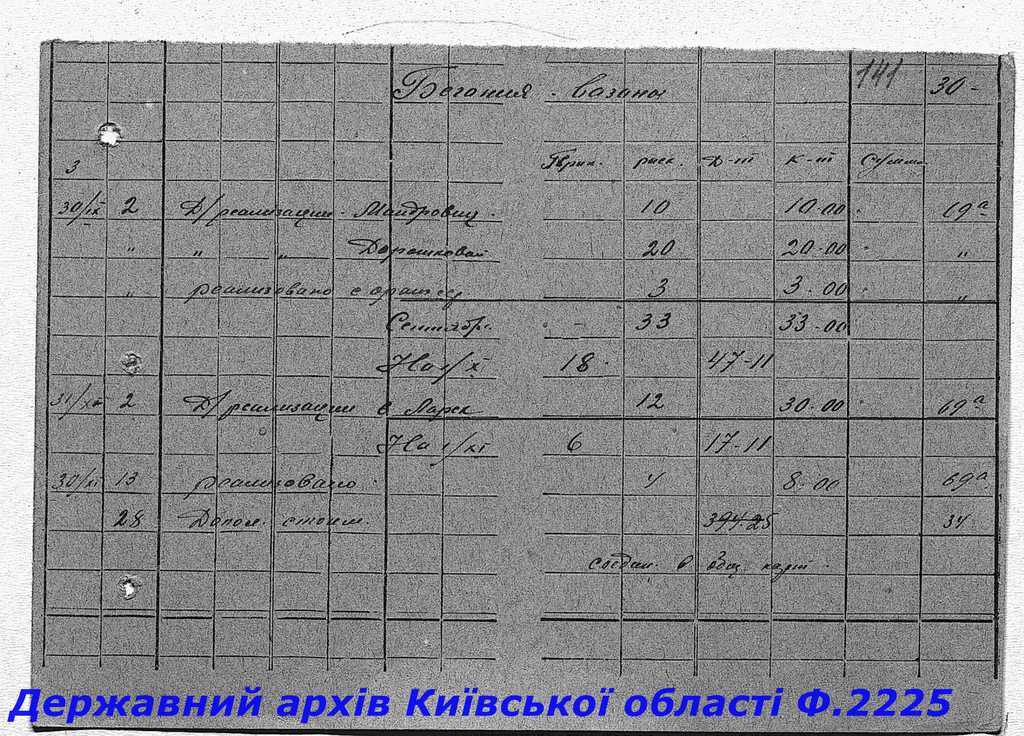 141
Бегония - вазоны 30-
3 Прих. расх. Д-т К-т Сумма
30/IX 2 Д/реализации - Мандровиц - 10 10-00 69а
" " " Дорошковой 20 20-00 "
" реализовано с оранж 3 3-00 "
Сентябрь - 33 33-00
На 1/X 18 47-11
31/X 2 Д/реализации в Ларек 12 30-00 69а
На 1/XI 6 17-11
30/XI 13 реализовано 4 8-00 69а
28 Допол. стоим. 394-25 34
соедин. в общ карт.
Державний архів Київської області Ф.2225